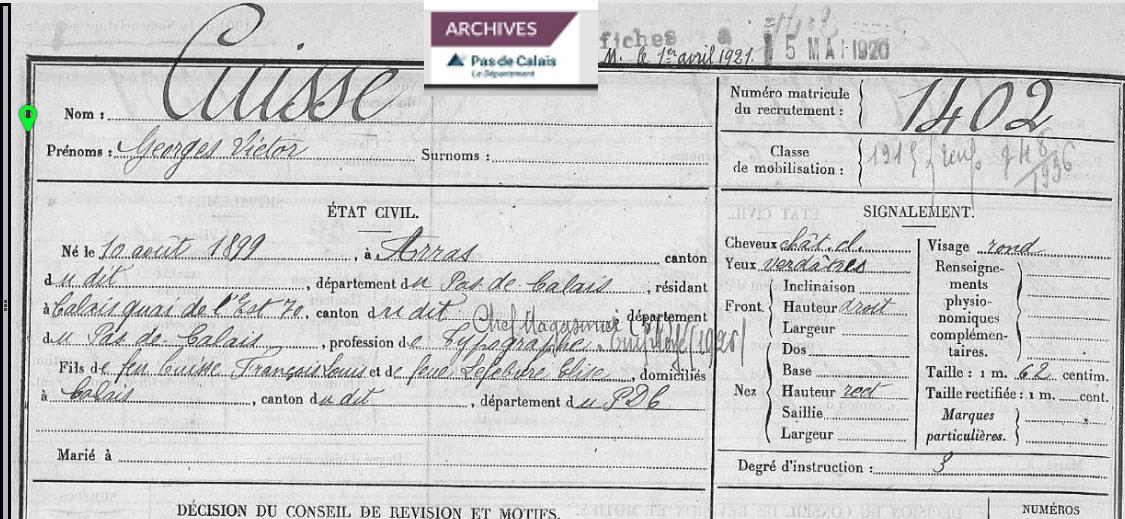 ARCHIVES
Pas de Calais
Le Département
fiches
M. le 1er avril 1921.
5 MAI 1920
Nom : Cuisse
Prénoms : Georges Victor Surnoms :
Numéro matricule
du recrutement : 1402
Classe
de mobilisation :
1936
ÉTAT CIVIL.
Né le 10 août 1899, à Arras canton
du dit, département du Pas de Calais, résidant
à Calais quai de l'Est 70, canton du dit département
Chef Magasinier
du Pas-de-Calais, profession de Typographe. Employé (1926)
Fils de feu Cuisse François Louis et de feue Lefebvre Elise, domiciliés
à Calais, canton du dit, département du PDC
Marié à
SIGNALEMENT.
Cheveux chât. cl.
Yeux verdâtres
Front. Inclinaison
Hauteur droit
Largeur
Nez Dos
Base
Hauteur rect
Saillie
Largeur
Visage rond
Renseigne-
ments
physio-
nomiques
complémen-
taires.
Taille : 1 m. 62 centim.
Taille rectifiée : 1 m. cent.
Marques
particulières.
Degré d'instruction : 3
DÉCISION DU CONSEIL DE REVISION ET MOTIFS.
NUMÉROS